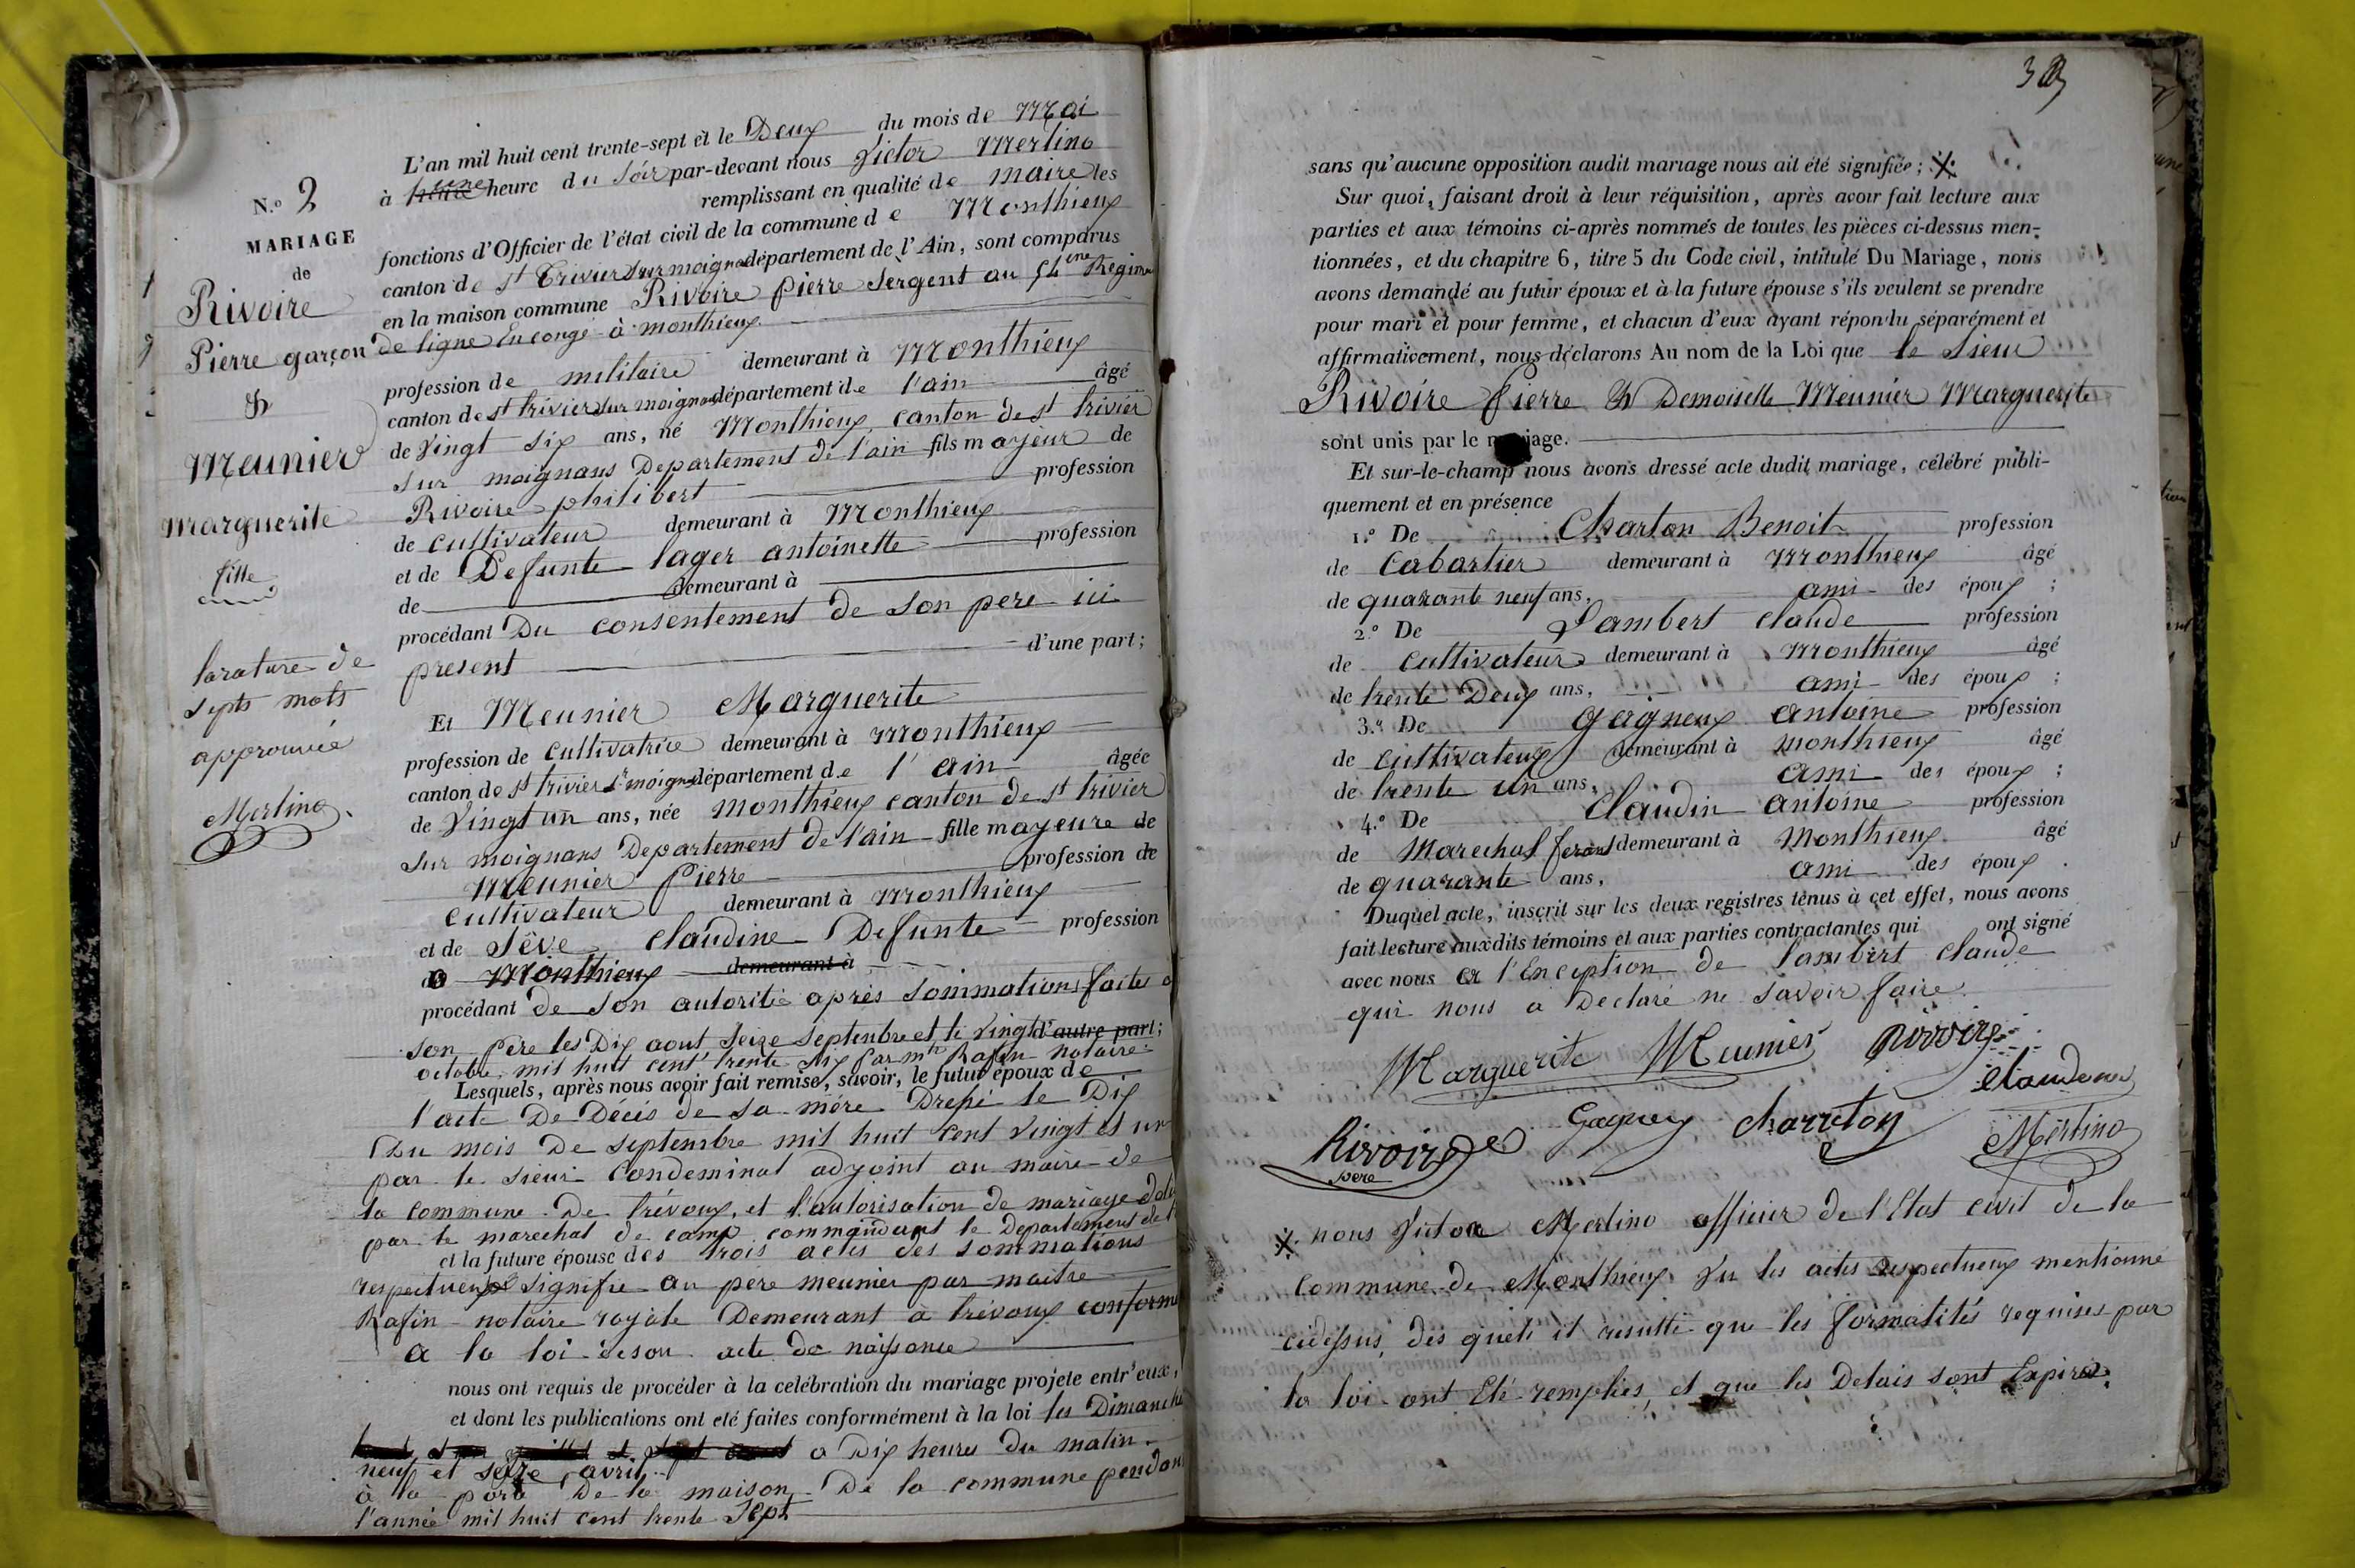 N.o 2
MARIAGE
de
Rivoire
Pierre garçon
&
Meunier
marguerite
fille
larature de
septs mots
approuvée
Merlino
L'an mil huit cent trente-sept et le Deux du mois de Mai
à une heure du soir par-devant nous Victor Merlino
remplissant en qualité de maire les
fonctions d'Officier de l'état civil de la commune de Monthieux
canton de st Trivier sur moignans département de l'Ain, sont comparus
en la maison commune Rivoire pierre Sergent au 54eme Regime
de ligne En congé à monthieux
profession de militaire demeurant à Monthieux
canton de st trivier sur moignans département de l'ain âgé
de Vingt Six ans, né Monthieux, canton de st trivier
sur moignans Departement de l'ain fils majeur de
Rivoire philibert profession
de cultivateur demeurant à Monthieux
et de Defunte lager antoinette profession
de demeurant à
procédant Du consentement de son pere ici
present d'une part;
Et Meunier Marguerite
profession de cultivatrice demeurant à Monthieux
canton de st trivier sr moignans département de l'ain âgée
de Vingt un ans, née monthieux canton de st trivier
sur moignans Departement de l'ain fille mayeure de
Meunier Pierre profession de
cultivateur demeurant à Monthieux
et de Sève Claudine Defunte profession
Monthieux demeurant à
procédant de son autorité après sommations faites a
son père les Dix aout Seize septembre et le vingt d'autre part;
octobre mil huit cent trente six par mtre Rafin notaire
Lesquels, après nous avoir fait remise, savoir, le futur époux de
l'acte De Décès de sa mère Dressé le Dix
Du mois De septembre mil huit cent vingt et un
par le sieur Condeminal adjoint au maire de
la commune De trévoux, et l'autorisation de mariage
par le marechal de camp commandant le Departement de
et la future épouse des trois actes des sommations
respectueux signifie au pere meunier par maitre
Rafin notaire royale Demeurant à trévoux conforme
a la loi de son acte de naissance
nous ont requis de procéder à la celébration du mariage projete entr'eux,
et dont les publications ont eté faites conformément à la loi les Dimanche
a Dix heures du matin
neuf et seize avril
à la porte De la maison De la commune pendant
l'année mil huit cent trente Sept
sans qu'aucune opposition audit mariage nous ait été signifiée; ※
Sur quoi, faisant droit à leur réquisition, après avoir fait lecture aux
parties et aux témoins ci-après nommés de toutes les pièces ci-dessus men-
tionnées, et du chapitre 6, titre 5 du Code civil, intitulé Du Mariage, nous
avons demandé au futur époux et à la future épouse s'ils veulent se prendre
pour mari et pour femme, et chacun d'eux ayant répondu séparément et
affirmativement, nous déclarons Au nom de la Loi que le Sieur
Rivoire Pierre Et Demoiselle Meunier Marguerite
sont unis par le mariage.
Et sur-le-champ nous avons dressé acte dudit mariage, célébré publi-
quement et en présence
1.o De Charton Benoit profession
de Cabartier demeurant à Monthieux âgé
de quarante neuf ans, ami des époux;
2.o De Lambert Claude profession
de cultivateur demeurant à Monthieux âgé
de trente Deux ans, ami des époux;
3.o De gaigneux antoine profession
de cultivateur demeurant à monthieux âgé
de trente un ans, ami des époux;
4.o De Claudin antoine profession
de Marechal ferant demeurant à Monthieux âgé
de quarante ans, ami des époux.
Duquel acte, inscrit sur les deux registres tenus à cet effet, nous avons
fait lecture auxdits témoins et aux parties contractantes qui ont signé
avec nous a l'Enception de Lambert Claude
qui nous a Declaré ne savoir faire
Marguerite Meunier Rivoire
Claudin
Rivoire père Gagneux Charreton Merlino
※ nous Victor Merlino officier de l'Etat civil de la
Commune de Monthieux Vu les actes respectueux mentionné
cidessus, des quels il resulte que les formalités requises par
la loi ont Eté remplies, et que les Delais sont Expirés